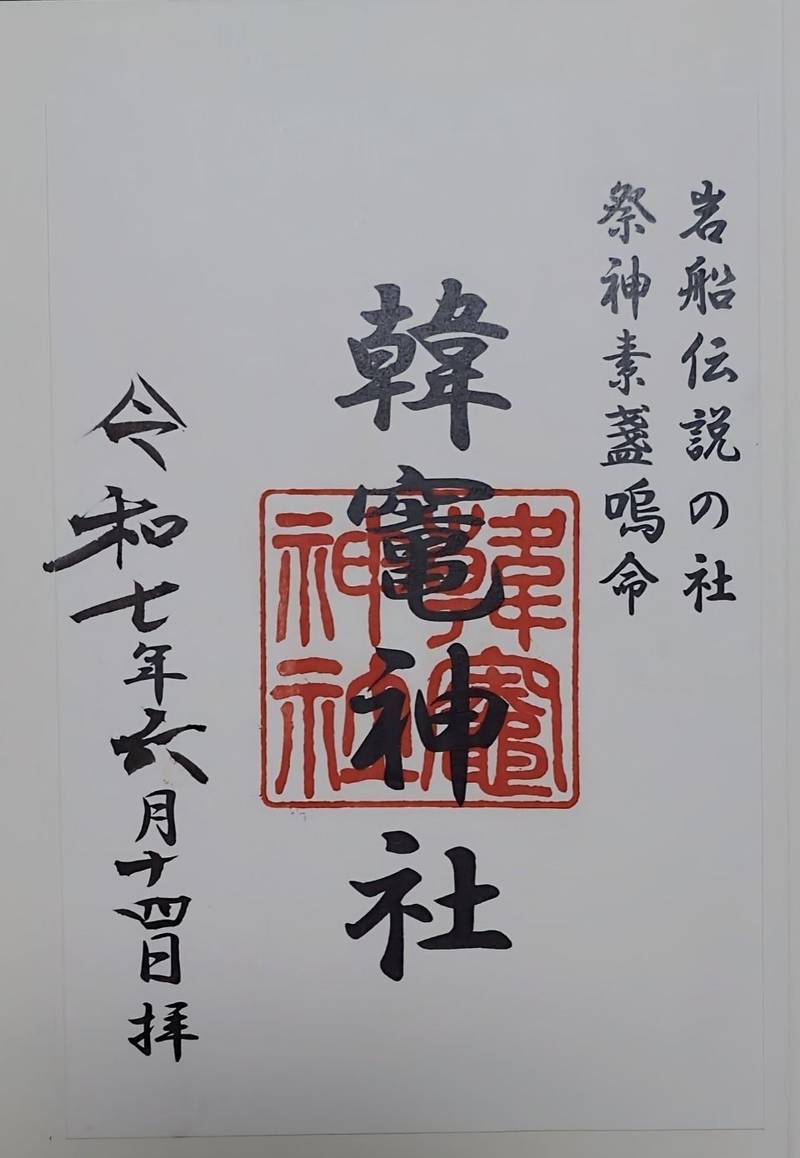 岩船伝説の社
祭神素盞嗚命
韓竈神社
韓竈神社
令和七年六月十四日拝